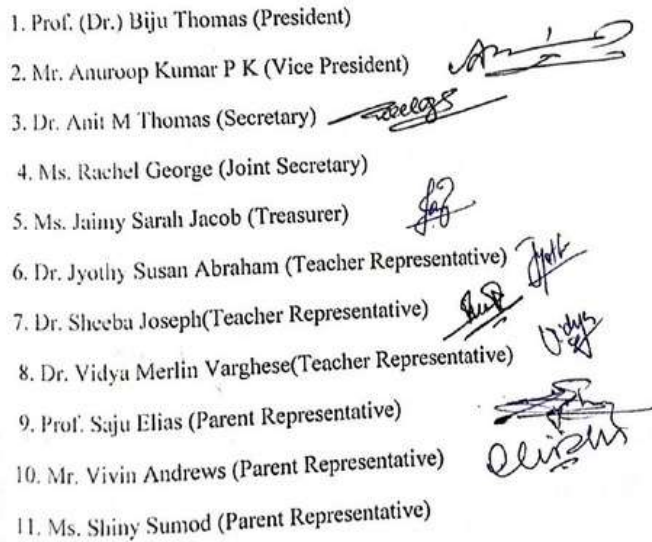 1. Prof. (Dr.) Biju Thomas (President)
2. Mr. Anuroop Kumar P K (Vice President)
3. Dr. Anit M Thomas (Secretary)
4. Ms. Rachel George (Joint Secretary)
5. Ms. Jaimy Sarah Jacob (Treasurer)
6. Dr. Jyothy Susan Abraham (Teacher Representative)
7. Dr. Sheeba Joseph(Teacher Representative)
8. Dr. Vidya Merlin Varghese(Teacher Representative)
9. Prof. Saju Elias (Parent Representative)
10. Mr. Vivin Andrews (Parent Representative)
11. Ms. Shiny Sumod (Parent Representative)